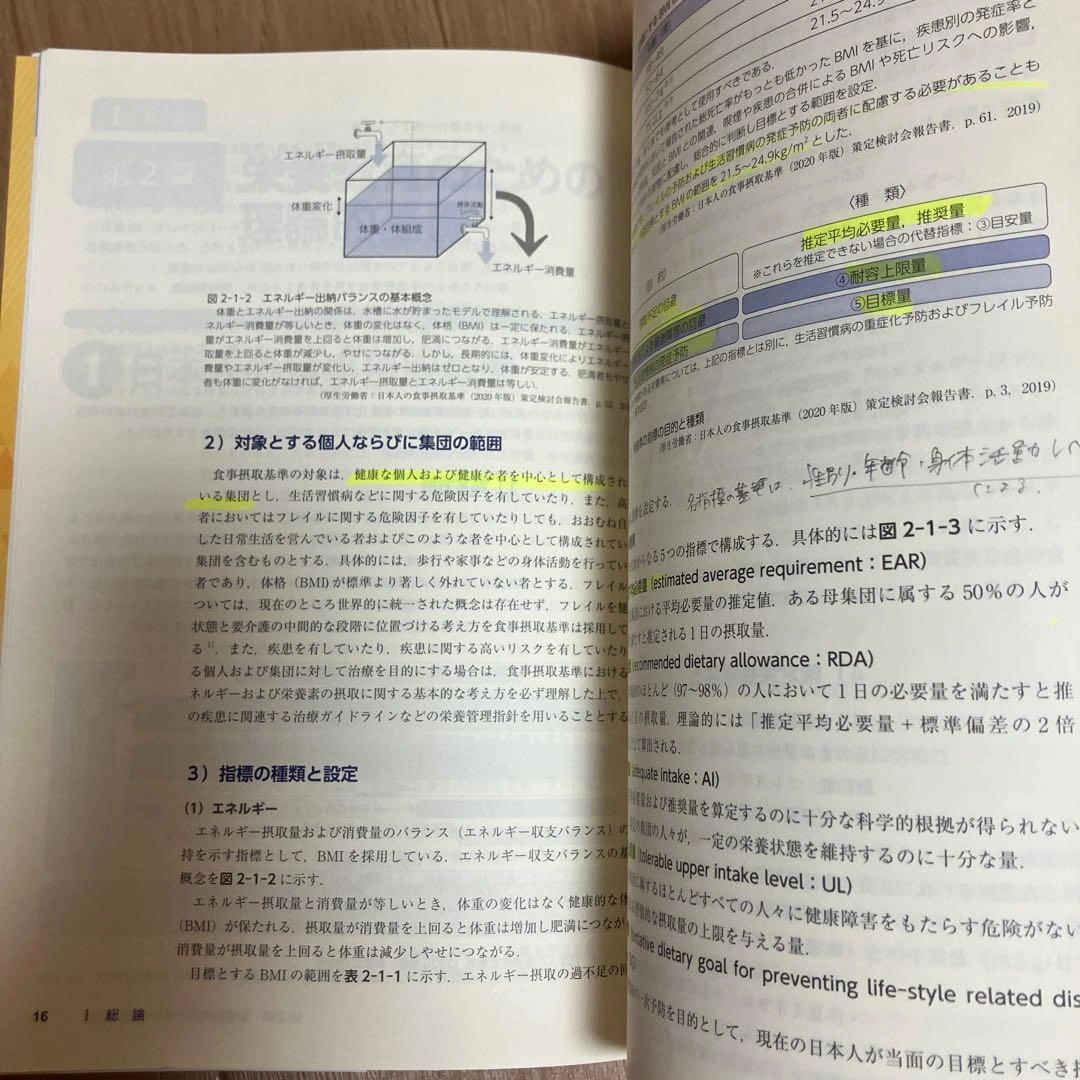 エネルギー摂取量
体重変化
身体活動
レベル
体重・体組成
エネルギー消費量
図 2-1-2 エネルギー出納バランスの基本概念
体重とエネルギー出納の関係は，水槽に水が貯まったモデルで理解される．エネルギー摂取量と
ネルギー消費量が等しいとき，体重の変化はなく，体格（BMI）は一定に保たれる．エネルギー摂
量がエネルギー消費量を上回ると体重は増加し，肥満につながる．エネルギー消費量がエネルギー
取量を上回ると体重が減少し，やせにつながる．しかし，長期的には，体重変化によりエネルギー
費量やエネルギー摂取量が変化し，エネルギー出納はゼロとなり，体重が安定する．肥満者もやせ
者も体重に変化がなければ，エネルギー摂取量とエネルギー消費量は等しい．
（厚生労働省：日本人の食事摂取基準（2020 年版）策定検討会報告書．p. 52,
2）対象とする個人ならびに集団の範囲
食事摂取基準の対象は，健康な個人および健康な者を中心として構成され
いる集団とし，生活習慣病などに関する危険因子を有していたり，また，高
者においてはフレイルに関する危険因子を有していたりしても，おおむね自
した日常生活を営んでいる者およびこのような者を中心として構成されてい
集団を含むものとする．具体的には，歩行や家事などの身体活動を行ってい
者であり，体格（BMI）が標準より著しく外れていない者とする．フレイル
ついては，現在のところ世界的に統一された概念は存在せず，フレイルを健
状態と要介護の中間的な段階に位置づける考え方を食事摂取基準は採用して
る1)．また，疾患を有していたり，疾患に関する高いリスクを有していたり
る個人および集団に対して治療を目的にする場合は，食事摂取基準における
ネルギーおよび栄養素の摂取に関する基本的な考え方を必ず理解した上で，
の疾患に関連する治療ガイドラインなどの栄養管理指針を用いることとする
3）指標の種類と設定
（1）エネルギー
エネルギー摂取量および消費量のバランス（エネルギー収支バランス）の
持を示す指標として，BMIを採用している．エネルギー収支バランスの基
概念を図 2-1-2 に示す．
エネルギー摂取量と消費量が等しいとき，体重の変化はなく健康的な体
（BMI）が保たれる．摂取量が消費量を上回ると体重は増加し肥満につなが
消費量が摂取量を上回ると体重は減少しやせにつながる．
目標とする BMI の範囲を表 2-1-1 に示す．エネルギー摂取の過不足の回
16 Ⅰ 総 論
21.5～24.9
として使用すべきである．
報告された総死亡率がもっとも低かった BMI を基に，疾患別の発症率と
BMI との関連，喫煙や疾患の合併による BMI や死亡リスクへの影響，
に配慮し，総合的に判断し目標とする範囲を設定．
フレイルの予防および生活習慣病の発症予防の両者に配慮する必要があることも
目標とする BMI の範囲を 21.5～24.9kg/m2 とした．
（厚生労働省：日本人の食事摂取基準（2020 年版）策定検討会報告書．p. 61, 2019）
〈種 類〉
推定平均必要量，推奨量
※これらを推定できない場合の代替指標：③目安量
④耐容上限量
⑤目標量
目 的〉
不足の回避
健康障害の回避
の発症予防
については，上記の指標とは別に，生活習慣病の重症化予防およびフレイル予防
の指標の目的と種類
（厚生労働省：日本人の食事摂取基準（2020 年版）策定検討会報告書．p. 3, 2019）
を設定する．
各指標の基準は、性別・年齢・身体活動レベ
による．
からなる5つの指標で構成する．具体的には図 2-1-3 に示す．
必要量（estimated average requirement：EAR）
における平均必要量の推定値．ある母集団に属する 50％の人が
たすと推定される1日の摂取量．
ecommended dietary allowance：RDA）
のほとんど（97～98％）の人において1日の必要量を満たすと推
の摂取量．理論的には「推定平均必要量＋標準偏差の2倍
して算出される．
adequate intake：AI）
必要量および推奨量を算定するのに十分な科学的根拠が得られない
の集団の人々が，一定の栄養状態を維持するのに十分な量．
tolerable upper intake level：UL）
に属するほとんどすべての人々に健康障害をもたらす危険がない
習慣的な摂取量の上限を与える量．
entative dietary goal for preventing life-style related dis
DG）
の一次予防を目的として，現在の日本人が当面の目標とすべき摂